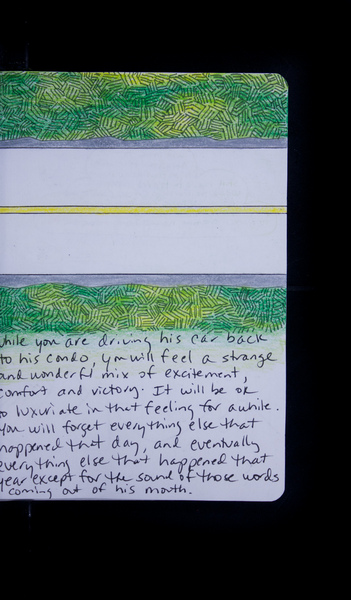 while you are driving his car back
to his condo, you will feel a strange
and wonderful mix of excitement,
comfort and victory. It will be ok
to luxuriate in that feeling for awhile.
You will forget everything else that
happened that day, and eventually
everything else that happened that
year except for the sound of those words
coming out of his mouth.